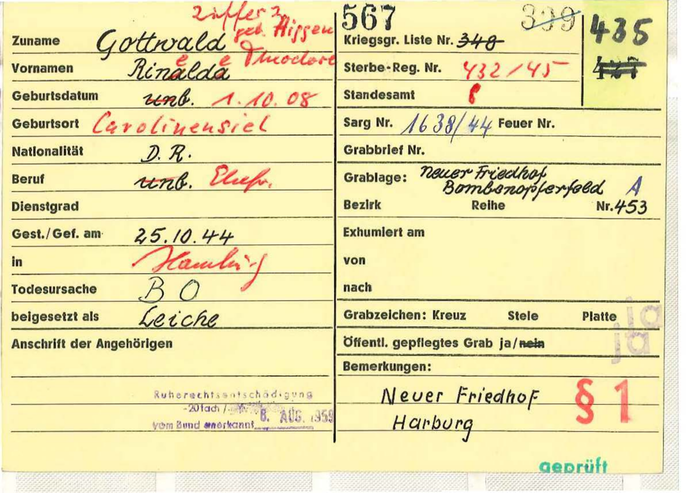 Ziffer 2
Zuname Gottwald geb. Higgen
Vornamen Rinalda e e Theodore
Geburtsdatum unb. 1.10.08
Geburtsort Carolinensiel
Nationalität D.R.
Beruf unb. Ehefr.
Dienstgrad
Gest./Gef. am 25.10.44
in Hamburg
Todesursache B O
beigesetzt als Leiche
Anschrift der Angehörigen
Ruherechtsentschädigung
-20fach/-
vom Bund anerkannt 8. AUG. 1959
567 399 435
Kriegsgr. Liste Nr. 348
Sterbe-Reg. Nr. 432/45 427
Standesamt
Sarg Nr. 1638/44 Feuer Nr.
Grabbrief Nr.
Grablage: Neuer Friedhof
Bombenopferfeld A
Bezirk Reihe Nr. 453
Exhumiert am
von
nach
Grabzeichen: Kreuz Stele Platte ja
Öffentl. gepflegtes Grab ja/nein ja
Bemerkungen:
Neuer Friedhof § 1
Harburg
geprüft